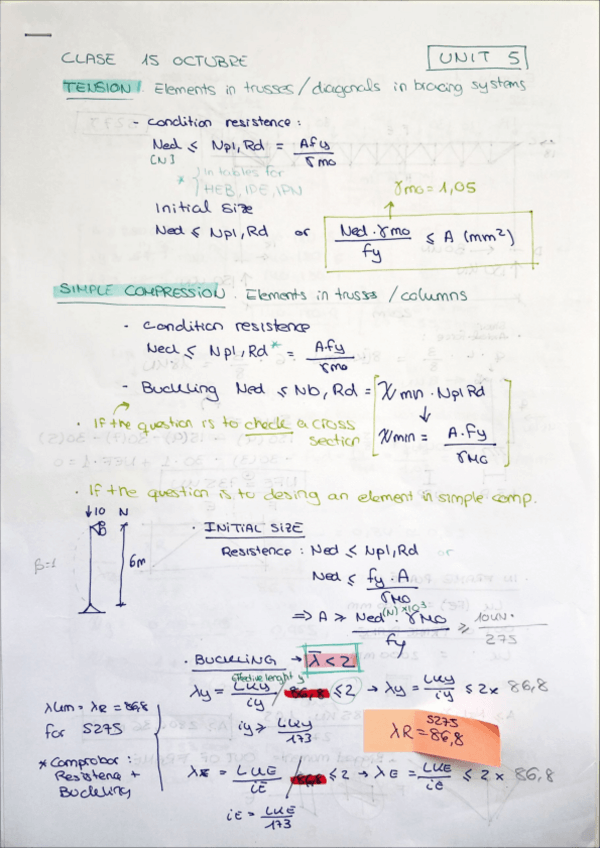 CLASE 15 OCTUBRE UNIT 5
TENSION. Elements in trusses/diagonals in bracing systems
- condition resistence:
Ned ≤ Npl,Rd = Afy / γmo
[N]
* In tables for
HEB, IPE, IPN
γmo = 1,05
Initial size
Ned ≤ Npl,Rd or Ned·γmo / fy ≤ A (mm²)
SIMPLE COMPRESSION. Elements in trusses/columns
· condition resistence
Ned ≤ Npl,Rd* = A·fy / γmo
- Buckling Ned ≤ Nb,Rd = χmin · Npl Rd
· If the question is to check a cross
section
χmin = A·Fy / γMO
· If the question is to desing an element in simple comp.
↓10 N
β=1
6m
· INITIAL SIZE
Resistence: Ned ≤ Npl,Rd or
Ned ≤ fy·A / γMO
⇒ A ≥ Ned (N)×10³ · γMO / fy ≥ 10kN· / 275
· BUCKLING → λ̄ < 2
effective lenght y
λy = LKY / iy / 86,8 ≤ 2 → λy = LKY / iy ≤ 2× 86,8
iy ≥ LKY / 173
S275
λR = 86,8
λLim = λR = 86,8
for S275
* Comprobar:
Resistena +
Buckling
λE = LKE / iE / 86,8 ≤ 2 → λE = LKE / iE ≤ 2× 86,8
iE = LKE / 173